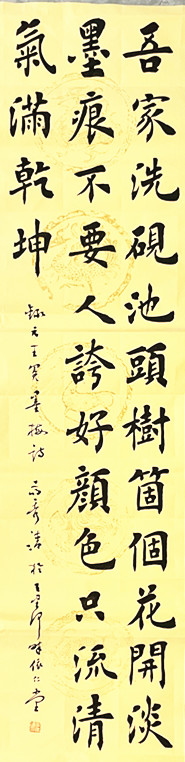 吾家洗硯池頭樹箇個花開淡
墨痕不要人誇好顔色只流清
氣滿乾坤
錄元王冕墨梅詩 於壬寅 依仁堂